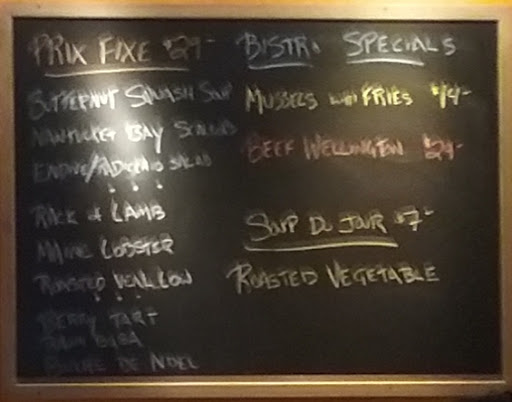 PRIX FIXE $29-
BUTTERNUT SQUASH SOUP
NANTUCKET BAY SCALLOPS
ENDIVE/RADICCHIO SALAD
RACK of LAMB
MAINE LOBSTER
ROASTED VEAL LOIN
BERRY TART
BABA
BUCHE DE NOEL
BISTRO SPECIALS
MUSSELS with FRIES $14-
BEEF WELLINGTON $29-
SOUP DU JOUR $7-
ROASTED VEGETABLE